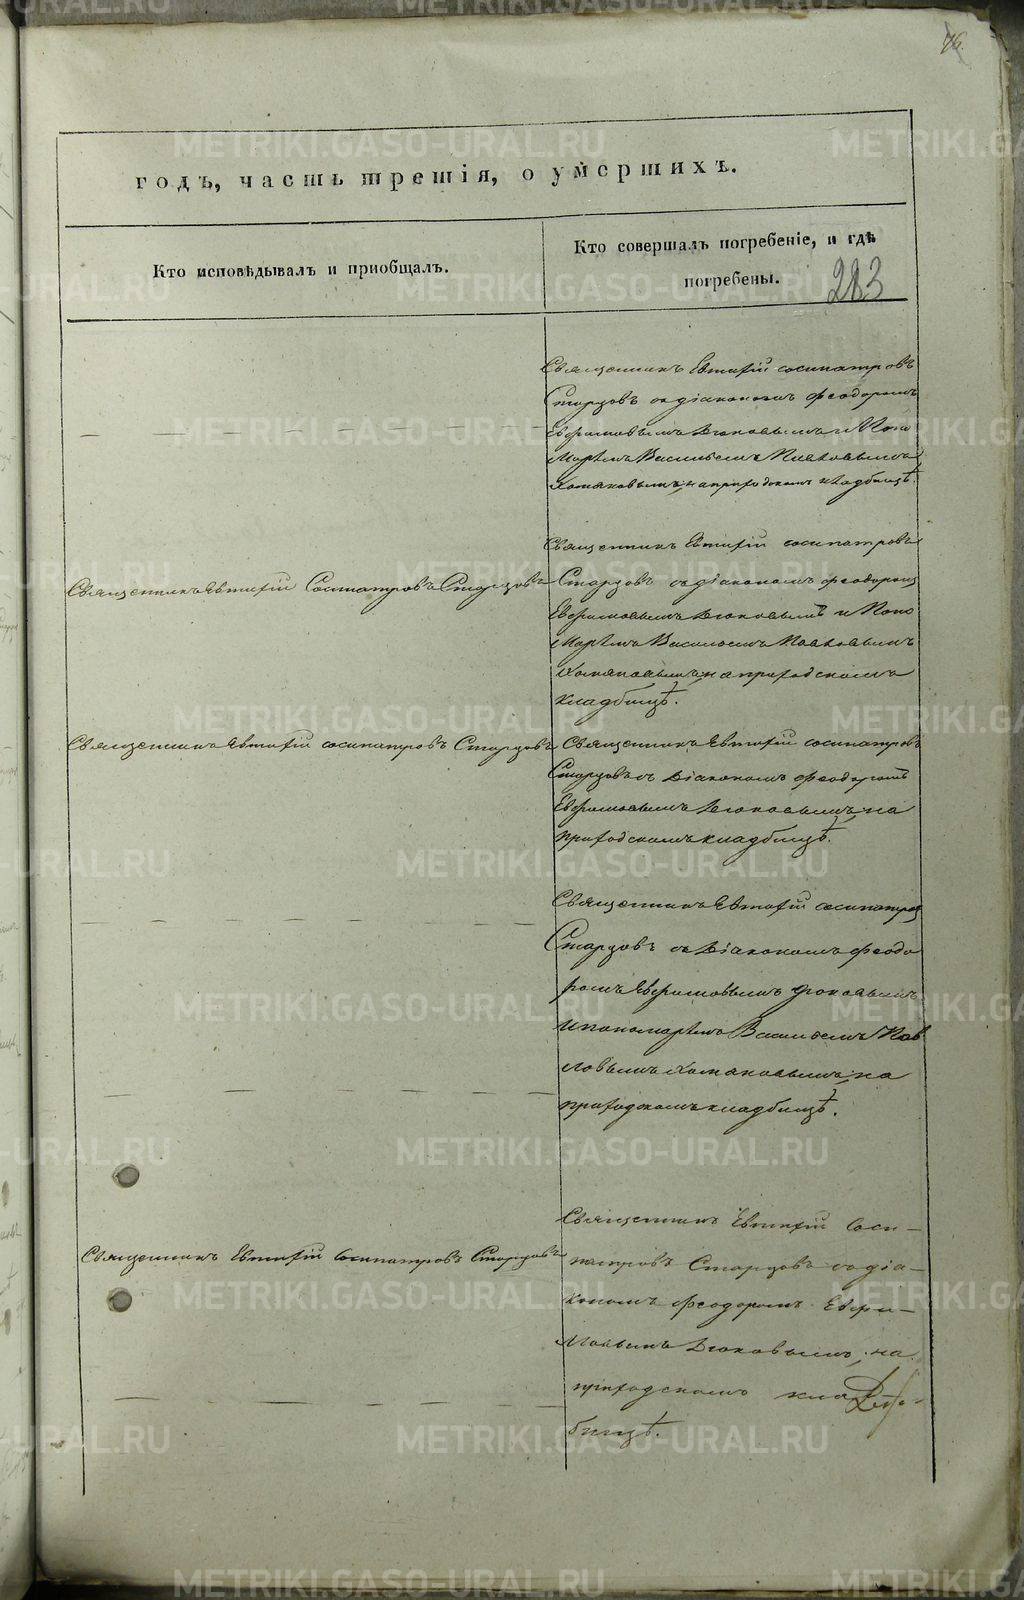 76.
годъ, часть третія, о умершихъ.
Кто исповѣдывалъ и пріобщалъ.
Кто совершалъ погребеніе, и гдѣ
погребены.
283
Священникъ Евтихій Сосипатровъ
Старцовъ съ діакономъ Феодоромъ
Ефимовымъ Дюковымъ и Поно
маремъ Васильемъ Павловымъ
Хомяковымъ, на приходскомъ кладбищѣ.
Священникъ Евтихій Сосипатровъ Старцовъ
Священникъ Евтихій Сосипатровъ
Старцовъ съ діакономъ Феодоромъ
Ефимовымъ Дюковымъ и Поно
маремъ Васильемъ Павловымъ
Хомяковымъ, на приходскомъ
кладбищѣ.
Священникъ Евтихій Сосипатровъ Старцовъ
Священникъ Евтихій Сосипатровъ
Старцовъ съ Діакономъ Феодоромъ
Ефимовымъ Дюковымъ, на
приходскомъ кладбищѣ.
Священникъ Евтихій Сосипатровъ
Старцовъ съ Діакономъ Феодо
ромъ Ефимовымъ Дюковымъ
и пономаремъ Васильемъ Пав
ловымъ Хомяковымъ, на
приходскомъ кладбищѣ.
Священникъ Евтихій Сосипатровъ Старцовъ
Священникъ Евтихій Соси-
патровъ Старцовъ съ діа-
кономъ Феодоромъ Ефи-
мовымъ Дюковымъ, на
приходскомъ клад-
бищѣ.
METRIKI.GASO-URAL.RU